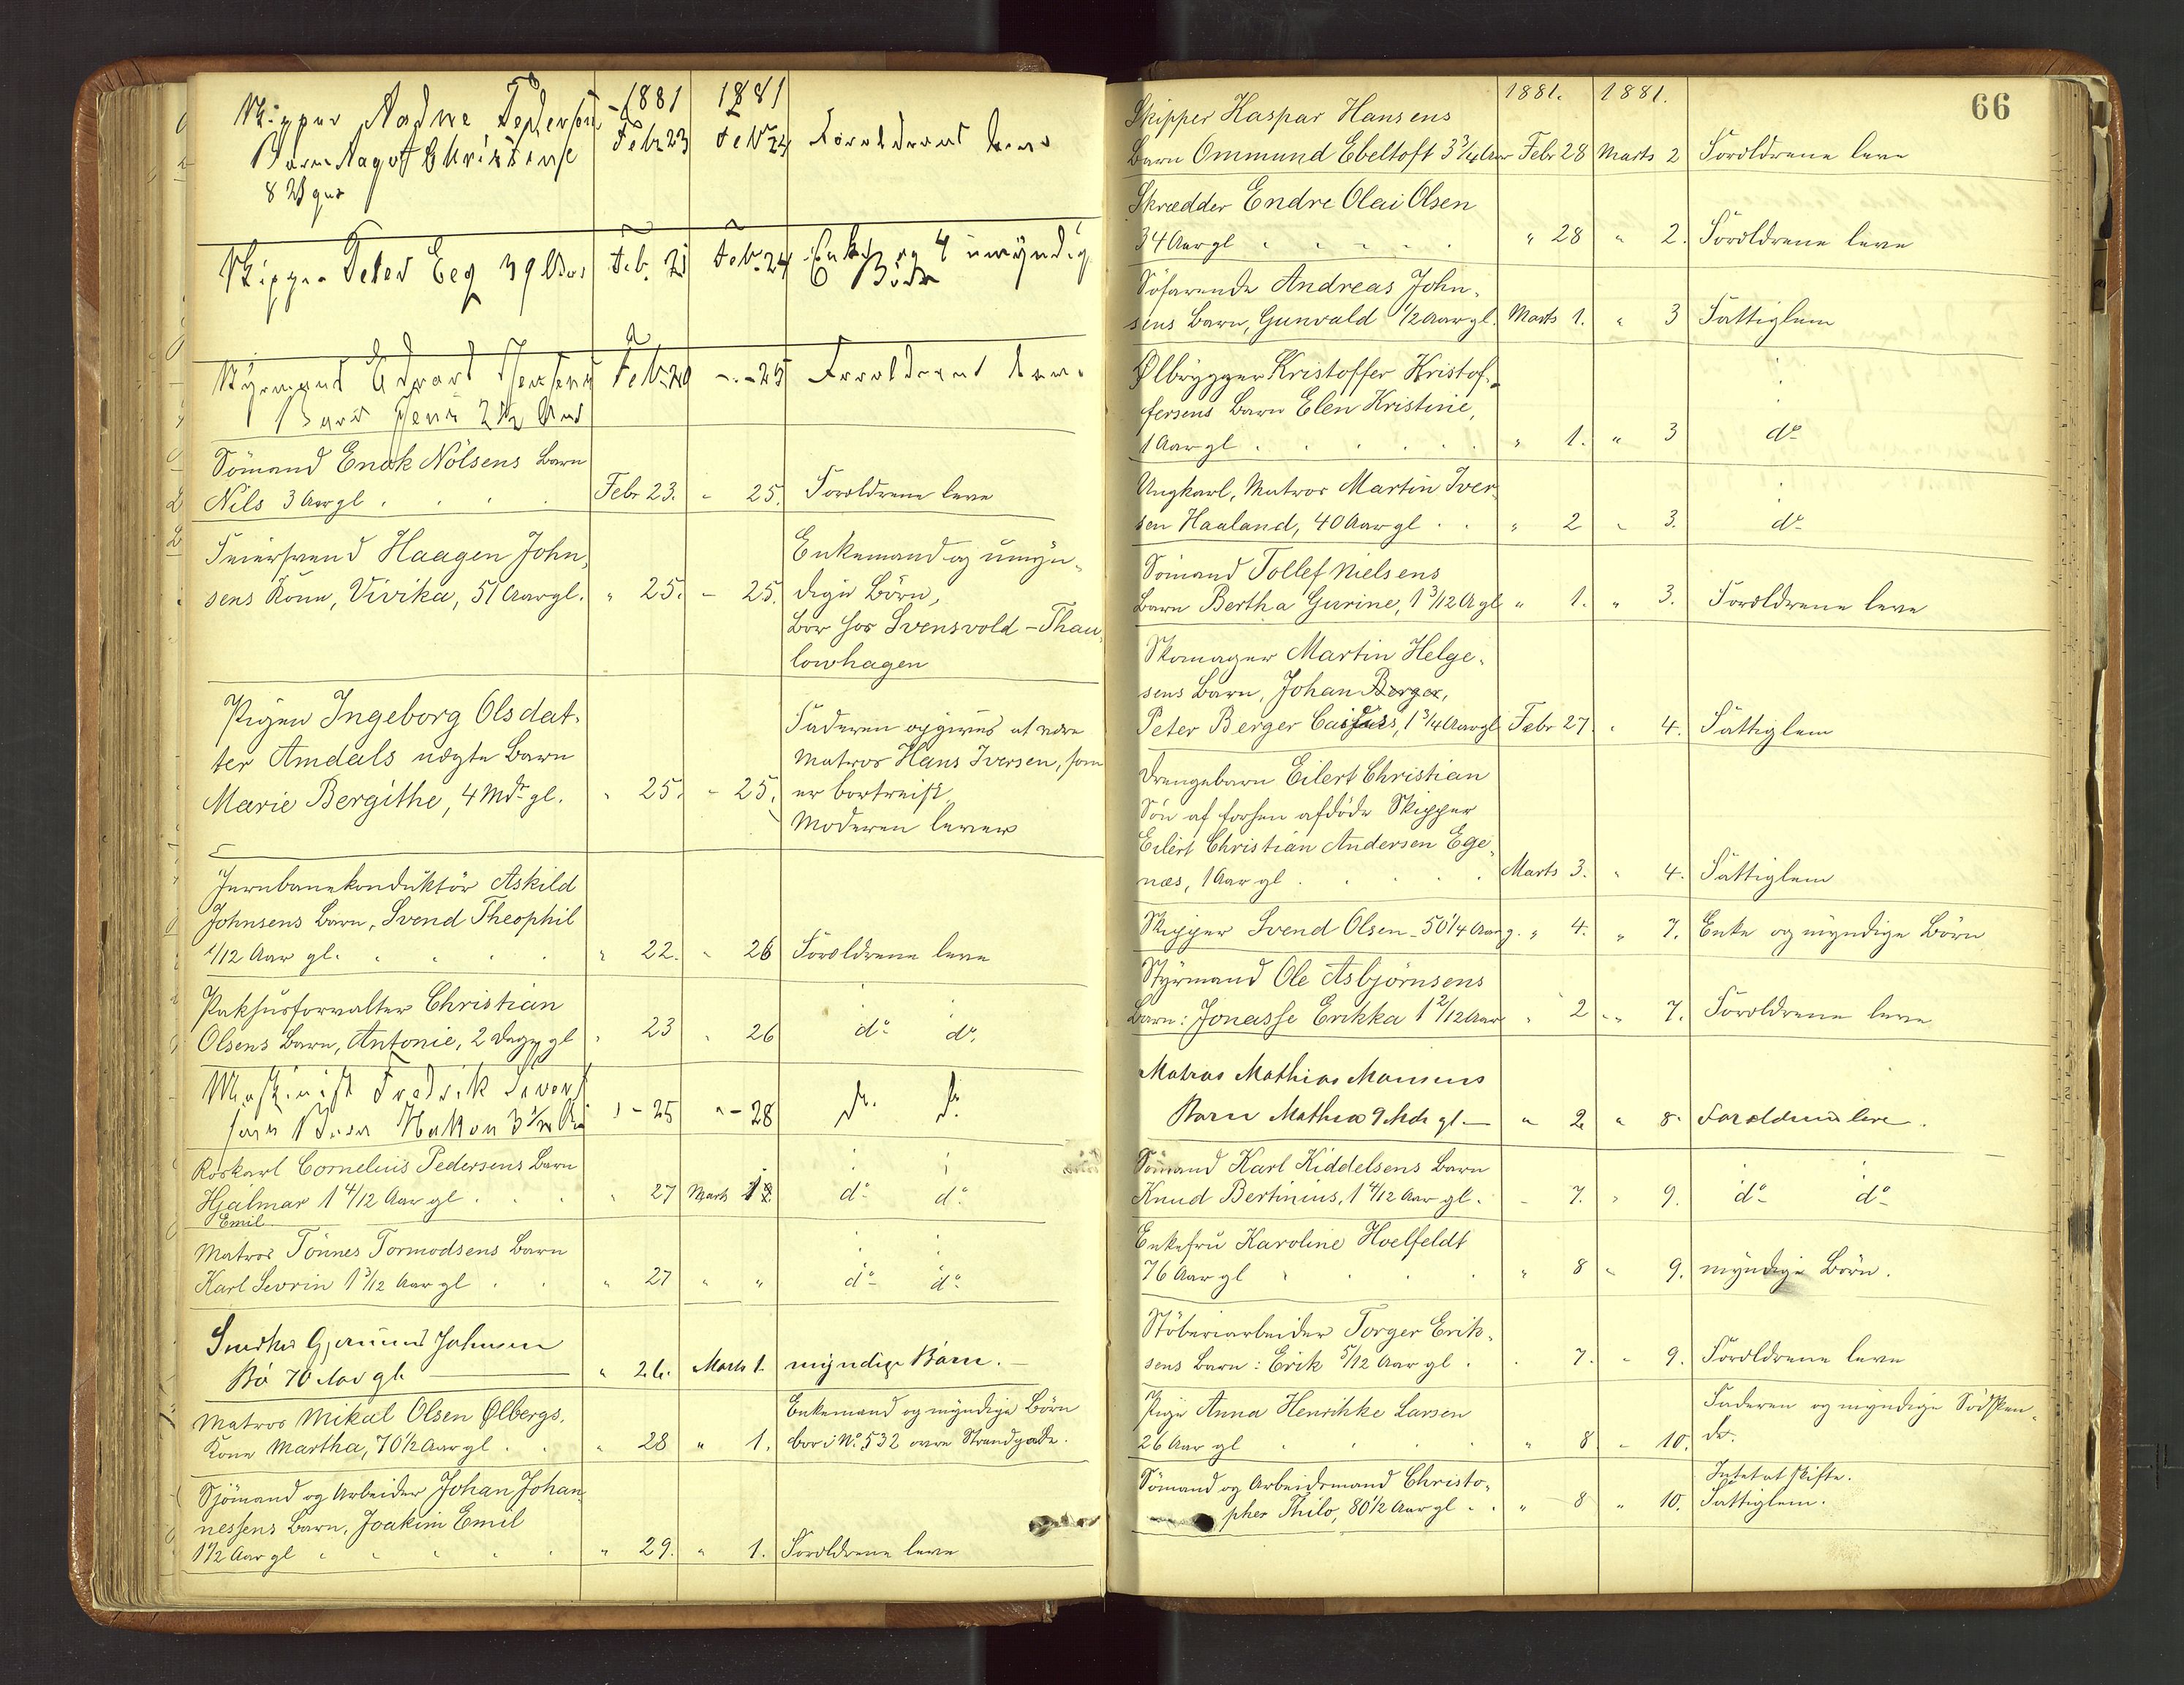 1881 1881
Skipper Aadne Pedersens
Barn Dagot Christense Febr 23 Feb 24 Forældrene leve
8 Dage
Skipper Peter Eeg 39 Aar Feb. 21 Feb. 24 Enke og 4 umyndige
Börn
Styrmand Edvart Jensens Feb. 20 - " - 25 Forældrene leve
Barn Jens 2½ Aar
Sömand Enok Nölsens Barn
Nils 3 Aar gl Febr 23. " 25. Forældrene leve
Feiersvend Haagen John-
sens Kone, Vivika, 51 Aar gl. " 25. - 25.
Enkemand og umyn-
dige Börn,
bor hos Svensvold - Thau-
lowhagen
Pigen Ingeborg Olsdat-
ter Amdals uægte Barn
Marie Bergithe, 4 Mdr gl. " 25. - 25.
Faderen opgives at være
Matros Hans Iversen, som
er bortreist.
Moderen lever
Jernbanekonduktör Askild
Johnsens Barn, Svend Theophil
1/12 Aar gl. " 22. " 26 Forældrene leve
Pakhusforvalter Christian
Olsens Barn, Antonie, 2 Dage gl " 23 " 26 do do.
Maskinist Fredrik
Barn Hakon " - 25 " - 28 do. do.
Roskarl Cornelius Pedersens Barn
Hjalmar 1 4/12 Aar gl " 27 Marts 1. do do
Emil
Matros Tönnes Tormodsens Barn
Karl Sevrin 1 3/12 Aar gl " 27 " " do do
Johnsen
Bö 70 Aar gl. " 26. Marts 1. myndige Börn.
Matros Mikal Olsen Ölbergs.
Kone Martha, 70½ Aar gl " 28 " 1.
Enkemand og myndige Börn
bor i No. 532 övre Strandgade.
Sjömand og Arbeider Johan Johan-
nessens Barn, Joakim Emil
1½ Aar gl " 29. " 1. Forældrene leve
66
1881. 1881.
Skipper Kaspar Hansens
Barn Ommund Ebeltoft 3 3/4 Aar Febr 28 Marts 2 Forældrene leve
Skrædder Endre Olai Olsen
34 Aar gl " 28 " 2. Forældrene leve
Söfarende Andreas John-
sens Barn, Gunvald ½ Aar gl. Marts 1. " 3 Fattiglem
Ølbrygger Kristoffer Kristof-
fersens Barn Elen Kristine,
1 Aar gl " 1. " 3 do
Ungkarl, Matros Martin Iver-
sen Haaland, 40 Aar gl " 2 " 3. do
Sömand Tollef Nielsens
Barn Bertha Gurine, 1 3/12 A gl " 1. " 3. Forældrene leve
Skomager Martin Helge-
sens Barn, Johan Berger,
Peter Berger 1 3/4 Aar gl Febr 27 " 4. Fattiglem
Drengebarn Eilert Christian
Sön af forhen afdöde Skipper
Eilert Christian Andersen Ege-
næs, 1 Aar gl Marts 3. " 4. Fattiglem
Skipper Svend Olsen - 50 1/4 Aar g. " 4. " 7. Enke og myndige Börn
Styrmand Ole Asbjörnsens
Barn: Jonasse Erikka 1 2/12 Aar " 2 " 7. Forældrene leve
Matros Mathias Monsens
Barn Mathea 9 Mdr gl. " 2 " 8. Forældrene leve.
Sömand Karl Kiddelsens Barn
Knud Bertinius, 1 4/12 Aar gl. - 7. " 9. do do
Enkefru Karoline Hoelfeldt
76 Aar gl " 8 " 9. myndige Börn.
Stöberiarbeider Torger Erik-
sens Barn: Erik 5/12 Aar gl . 7. " 9. Forældrene leve
Pige Anna Henrikke Larsen
26 Aar gl " 8 " 10.
Faderen og myndige Södsken-
de.
Sömand og Arbeidsmand Christo-
pher Thilo, 80½ Aar gl " 8 " 10.
Intet at skifte.
Fattiglem.